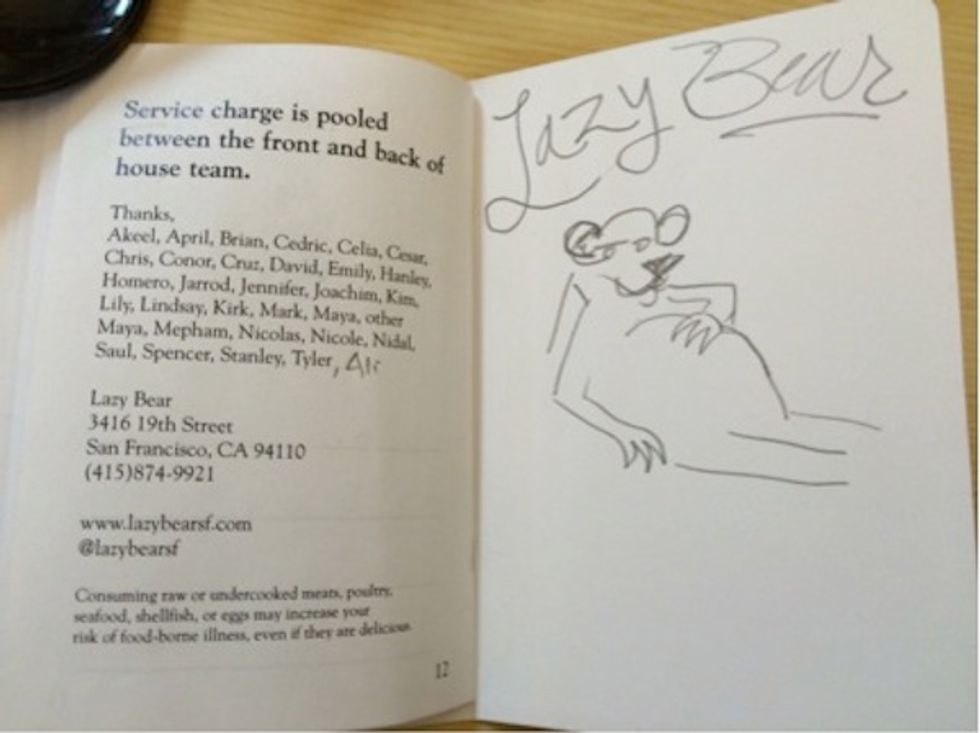 Service charge is pooled
between the front and back of
house team.
Thanks,
Akeel, April, Brian, Cedric, Celia, Cesar,
Chris, Conor, Cruz, David, Emily, Hanley,
Homero, Jarrod, Jennifer, Joachim, Kim,
Lily, Lindsay, Kirk, Mark, Maya, other
Maya, Mepham, Nicolas, Nicole, Nidal,
Saul, Spencer, Stanley, Tyler,
Lazy Bear
3416 19th Street
San Francisco, CA 94110
(415)874-9921
www.lazybearsf.com
@lazybearsf
Consuming raw or undercooked meats, poultry,
seafood, shellfish, or eggs may increase your
risk of food-borne illness, even if they are delicious.
12
Lazy Bear